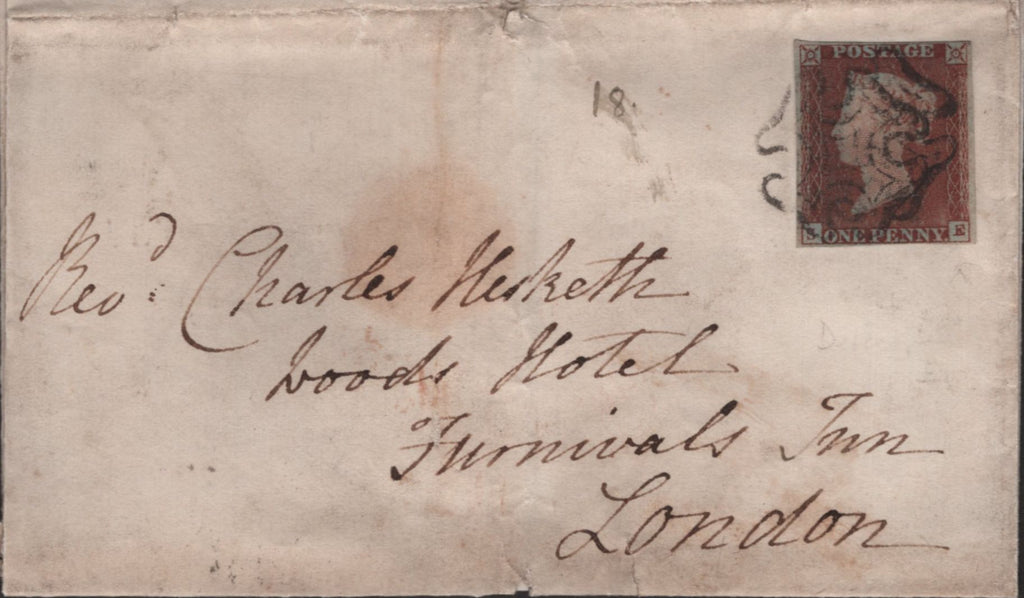 POSTAGE
18.
S ONE PENNY. E
Revd Charles Hesketh
Woods Hotel
Furnivals Inn
London